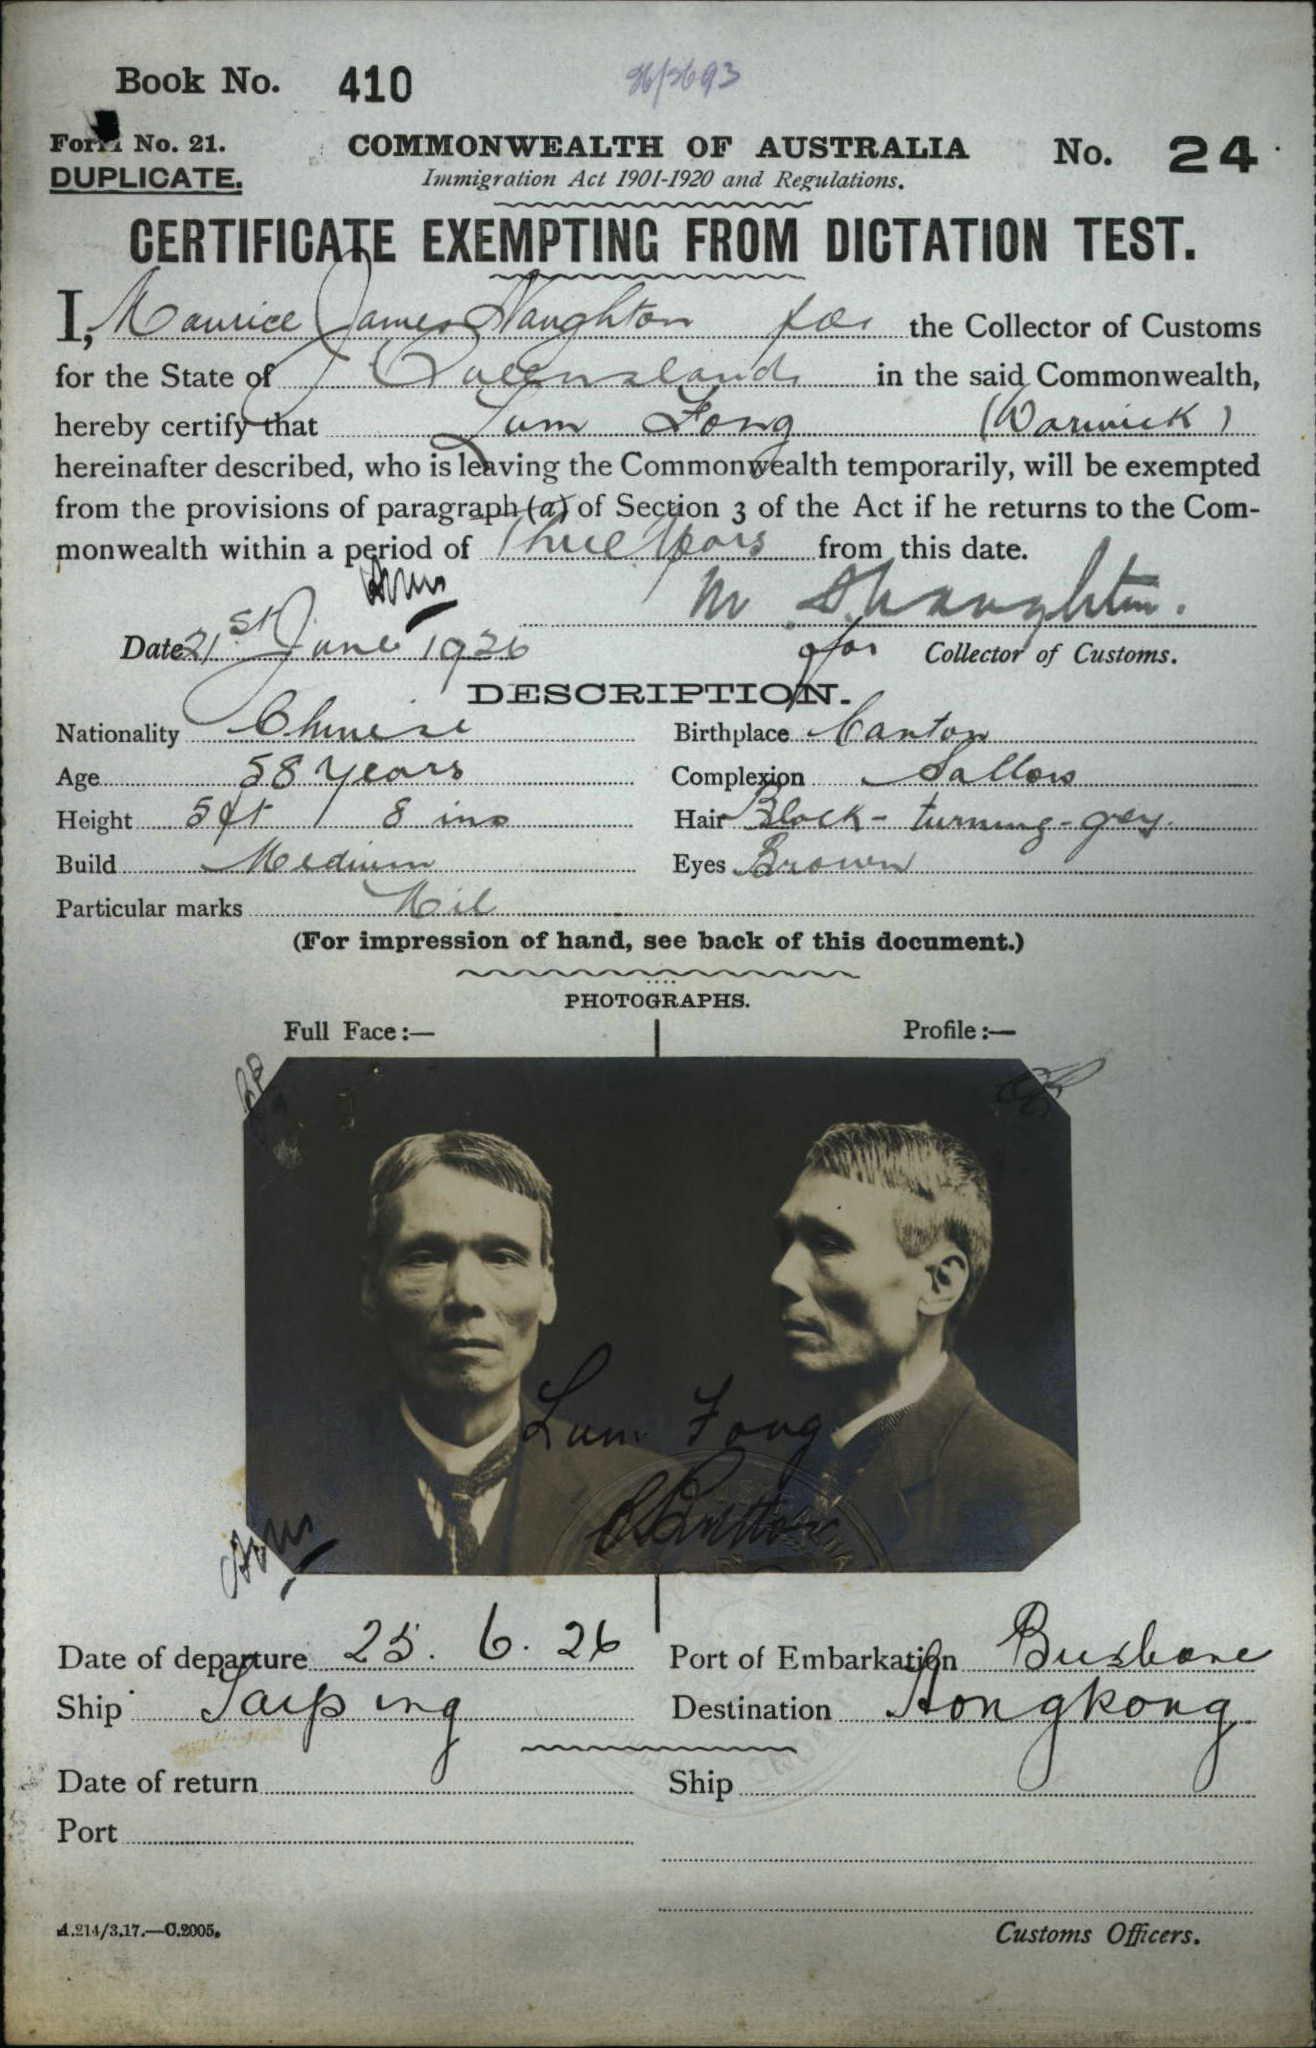 Book No. 410
Form No. 21.
DUPLICATE.
COMMONWEALTH OF AUSTRALIA
No. 24
Immigration Act 1901-1920 and Regulations.
CERTIFICATE EXEMPTING FROM DICTATION TEST.
I, Maurice James Naughton for the Collector of Customs
for the State of Queensland in the said Commonwealth,
hereby certify that Lum Fong (Warwick)
hereinafter described, who is leaving the Commonwealth temporarily, will be exempted
from the provisions of paragraph (a) of Section 3 of the Act if he returns to the Com-
monwealth within a period of Three Years from this date.
Date 21st June 1926
for Collector of Customs.
DESCRIPTION.
Nationality Chinese
Birthplace Canton
Age 58 years
Complexion Sallow
Height 5 ft 8 ins
Hair Black - turning - grey.
Build Medium
Eyes Brown
Particular marks Nil
(For impression of hand, see back of this document.)
PHOTOGRAPHS.
Full Face:—
Profile:—
Lum Fong
Date of departure 25. 6. 26
Port of Embarkation Brisbane
Ship Taiping
Destination Hongkong
Date of return
Ship
Port
A.214/3.17.—C.2005.
Customs Officers.